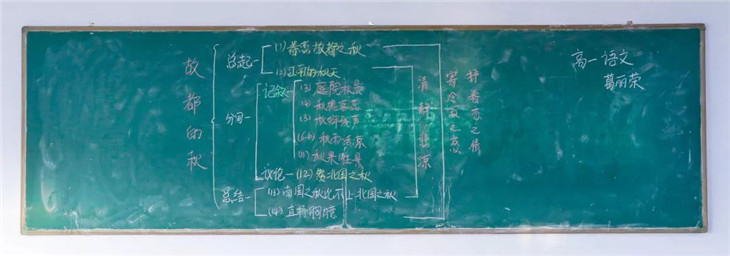 故都的秋
总起
(1)普香故都之秋
(2)江南的秋天
分写
记叙
(3)庭院秋晨
(4)秋槐落蕊
(5)秋蝉残声
秋雨话凉
(11)秋果胜景
议论
(12)赞北国之秋
总结
(13)南国之秋比不上北国之秋
(14)直抒胸臆
清 静 悲凉
之情
高一 语文
葛丽荣